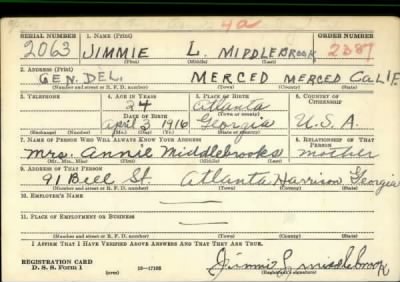 4a
SERIAL NUMBER 1. NAME (Print) ORDER NUMBER
2063 JIMMIE L. MIDDLEBROOK 2387
(First) (Middle) (Last)
2. ADDRESS (Print)
GEN. DEL. MERCED MERCED CALIF.
(Number and street or R. F. D. number) (Town) (County) (State)
3. TELEPHONE 4. AGE IN YEARS 5. PLACE OF BIRTH 6. COUNTRY OF CITIZENSHIP
24 Atlanta
DATE OF BIRTH (Town or county)
April 3 1916 Georgia U.S.A.
(Exchange) (Number) (Mo.) (Day) (Yr.) (State or country)
7. NAME OF PERSON WHO WILL ALWAYS KNOW YOUR ADDRESS 8. RELATIONSHIP OF THAT PERSON
Mrs. Annie Middlebrooks mother
(Mr., Mrs., Miss) (First) (Middle) (Last)
9. ADDRESS OF THAT PERSON
91 Bell St. Atlanta Harrison Georgia
(Number and street or R. F. D. number) (Town) (County) (State)
10. EMPLOYER'S NAME
—
11. PLACE OF EMPLOYMENT OR BUSINESS
—
(Number and street or R. F. D. number) (Town) (County) (State)
I AFFIRM THAT I HAVE VERIFIED ABOVE ANSWERS AND THAT THEY ARE TRUE.
REGISTRATION CARD Jimmie L. Middlebrook
D. S. S. Form 1 16—17105 (Registrant's signature)